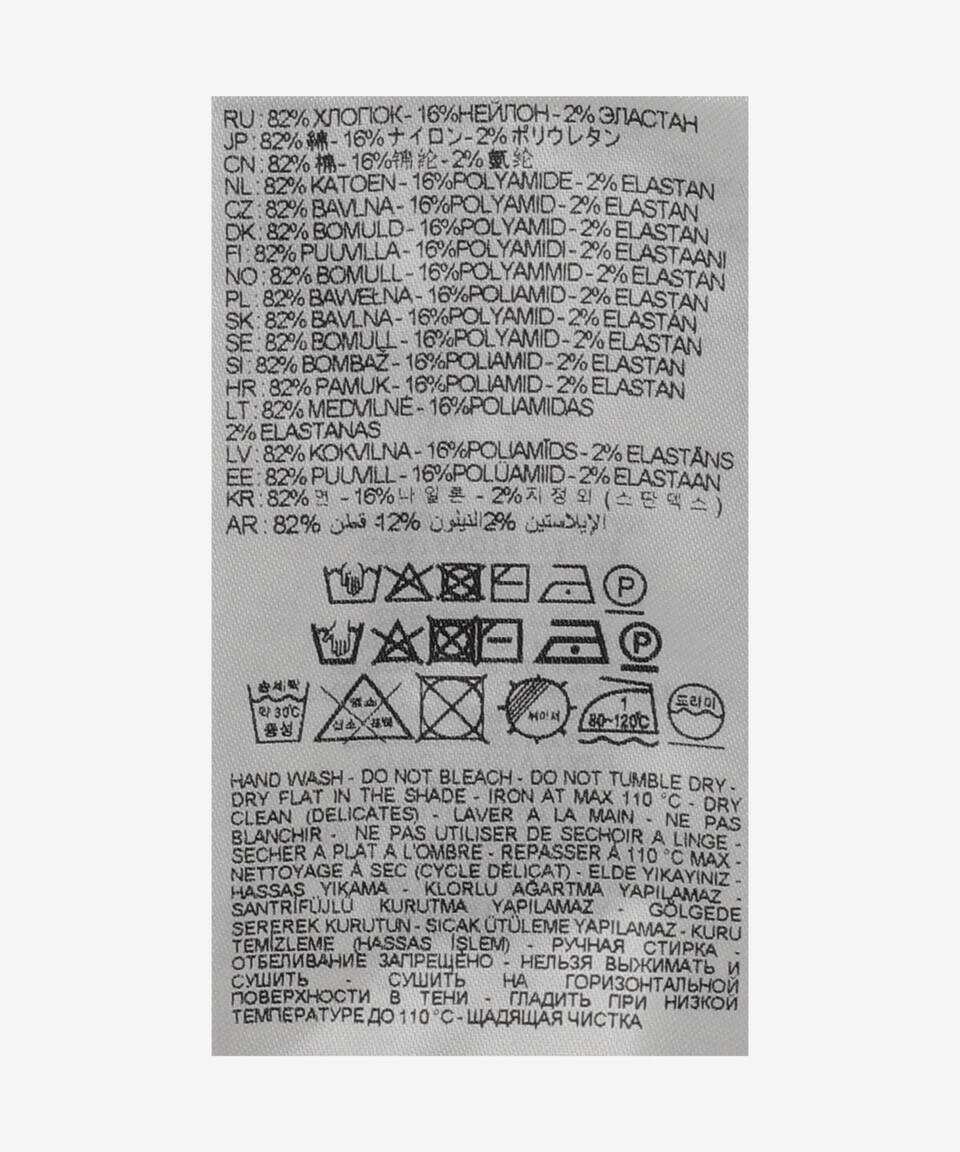 RU : 82% ХЛОПОК- 16%НЕЙЛОН - 2% ЭЛАСТАН
JP : 82% 綿- 16%ナイロン-2% ポリウレタン
CN : 82% 棉- 16%锦纶-2% 氨纶
NL : 82% KATOEN- 16%POLYAMIDE - 2% ELASTAN
CZ : 82% BAVLNA - 16%POLYAMID - 2% ELASTAN
DK : 82% BOMULD - 16%POLYAMID - 2% ELASTAN
FI : 82% PUUVILLA - 16%POLYAMIDI - 2% ELASTAANI
NO : 82% BOMULL - 16%POLYAMMID - 2% ELASTAN
PL : 82% BAWEŁNA - 16%POLIAMID - 2% ELASTAN
SK : 82% BAVLNA - 16%POLYAMID - 2% ELASTAN
SE : 82% BOMULL - 16%POLYAMID - 2% ELASTAN
SI : 82% BOMBAŽ - 16%POLIAMID - 2% ELASTAN
HR : 82% PAMUK - 16%POLIAMID - 2% ELASTAN
LT : 82% MEDVILNĖ - 16%POLIAMIDAS
2% ELASTANAS
LV : 82% KOKVILNA - 16%POLIAMĪDS - 2% ELASTĀNS
EE : 82% PUUVILL - 16%POLÜAMIID - 2% ELASTAAN
KR : 82% 면 - 16%나 일 론 - 2%지 정 외 (스 판 덱 스 )
AR : 82% قطن :12% النيلون2% الإيلاستين
P
P
손세탁
약 30℃
중성
염소
산소 표백
뉘어서
1
80~120℃
드라이
HAND WASH - DO NOT BLEACH - DO NOT TUMBLE DRY -
DRY FLAT IN THE SHADE - IRON AT MAX 110 °C - DRY
CLEAN (DELICATES) - LAVER A LA MAIN - NE PAS
BLANCHIR - NE PAS UTILISER DE SECHOIR A LINGE -
SECHER A PLAT A L'OMBRE - REPASSER À 110 °C MAX -
NETTOYAGE À SEC (CYCLE DÉLICAT) - ELDE YIKAYINIZ -
HASSAS YIKAMA - KLORLU AĞARTMA YAPILAMAZ -
SANTRİFÜJLÜ KURUTMA YAPILAMAZ - GÖLGEDE
SEREREK KURUTUN - SICAK ÜTÜLEME YAPILAMAZ - KURU
TEMİZLEME (HASSAS İŞLEM) - РУЧНАЯ СТИРКА -
ОТБЕЛИВАНИЕ ЗАПРЕЩЕНО - НЕЛЬЗЯ ВЫЖИМАТЬ И
СУШИТЬ - СУШИТЬ НА ГОРИЗОНТАЛЬНОЙ
ПОВЕРХНОСТИ В ТЕНИ - ГЛАДИТЬ ПРИ НИЗКОЙ
ТЕМПЕРАТУРЕ ДО 110 °C - ЩАДЯЩАЯ ЧИСТКА